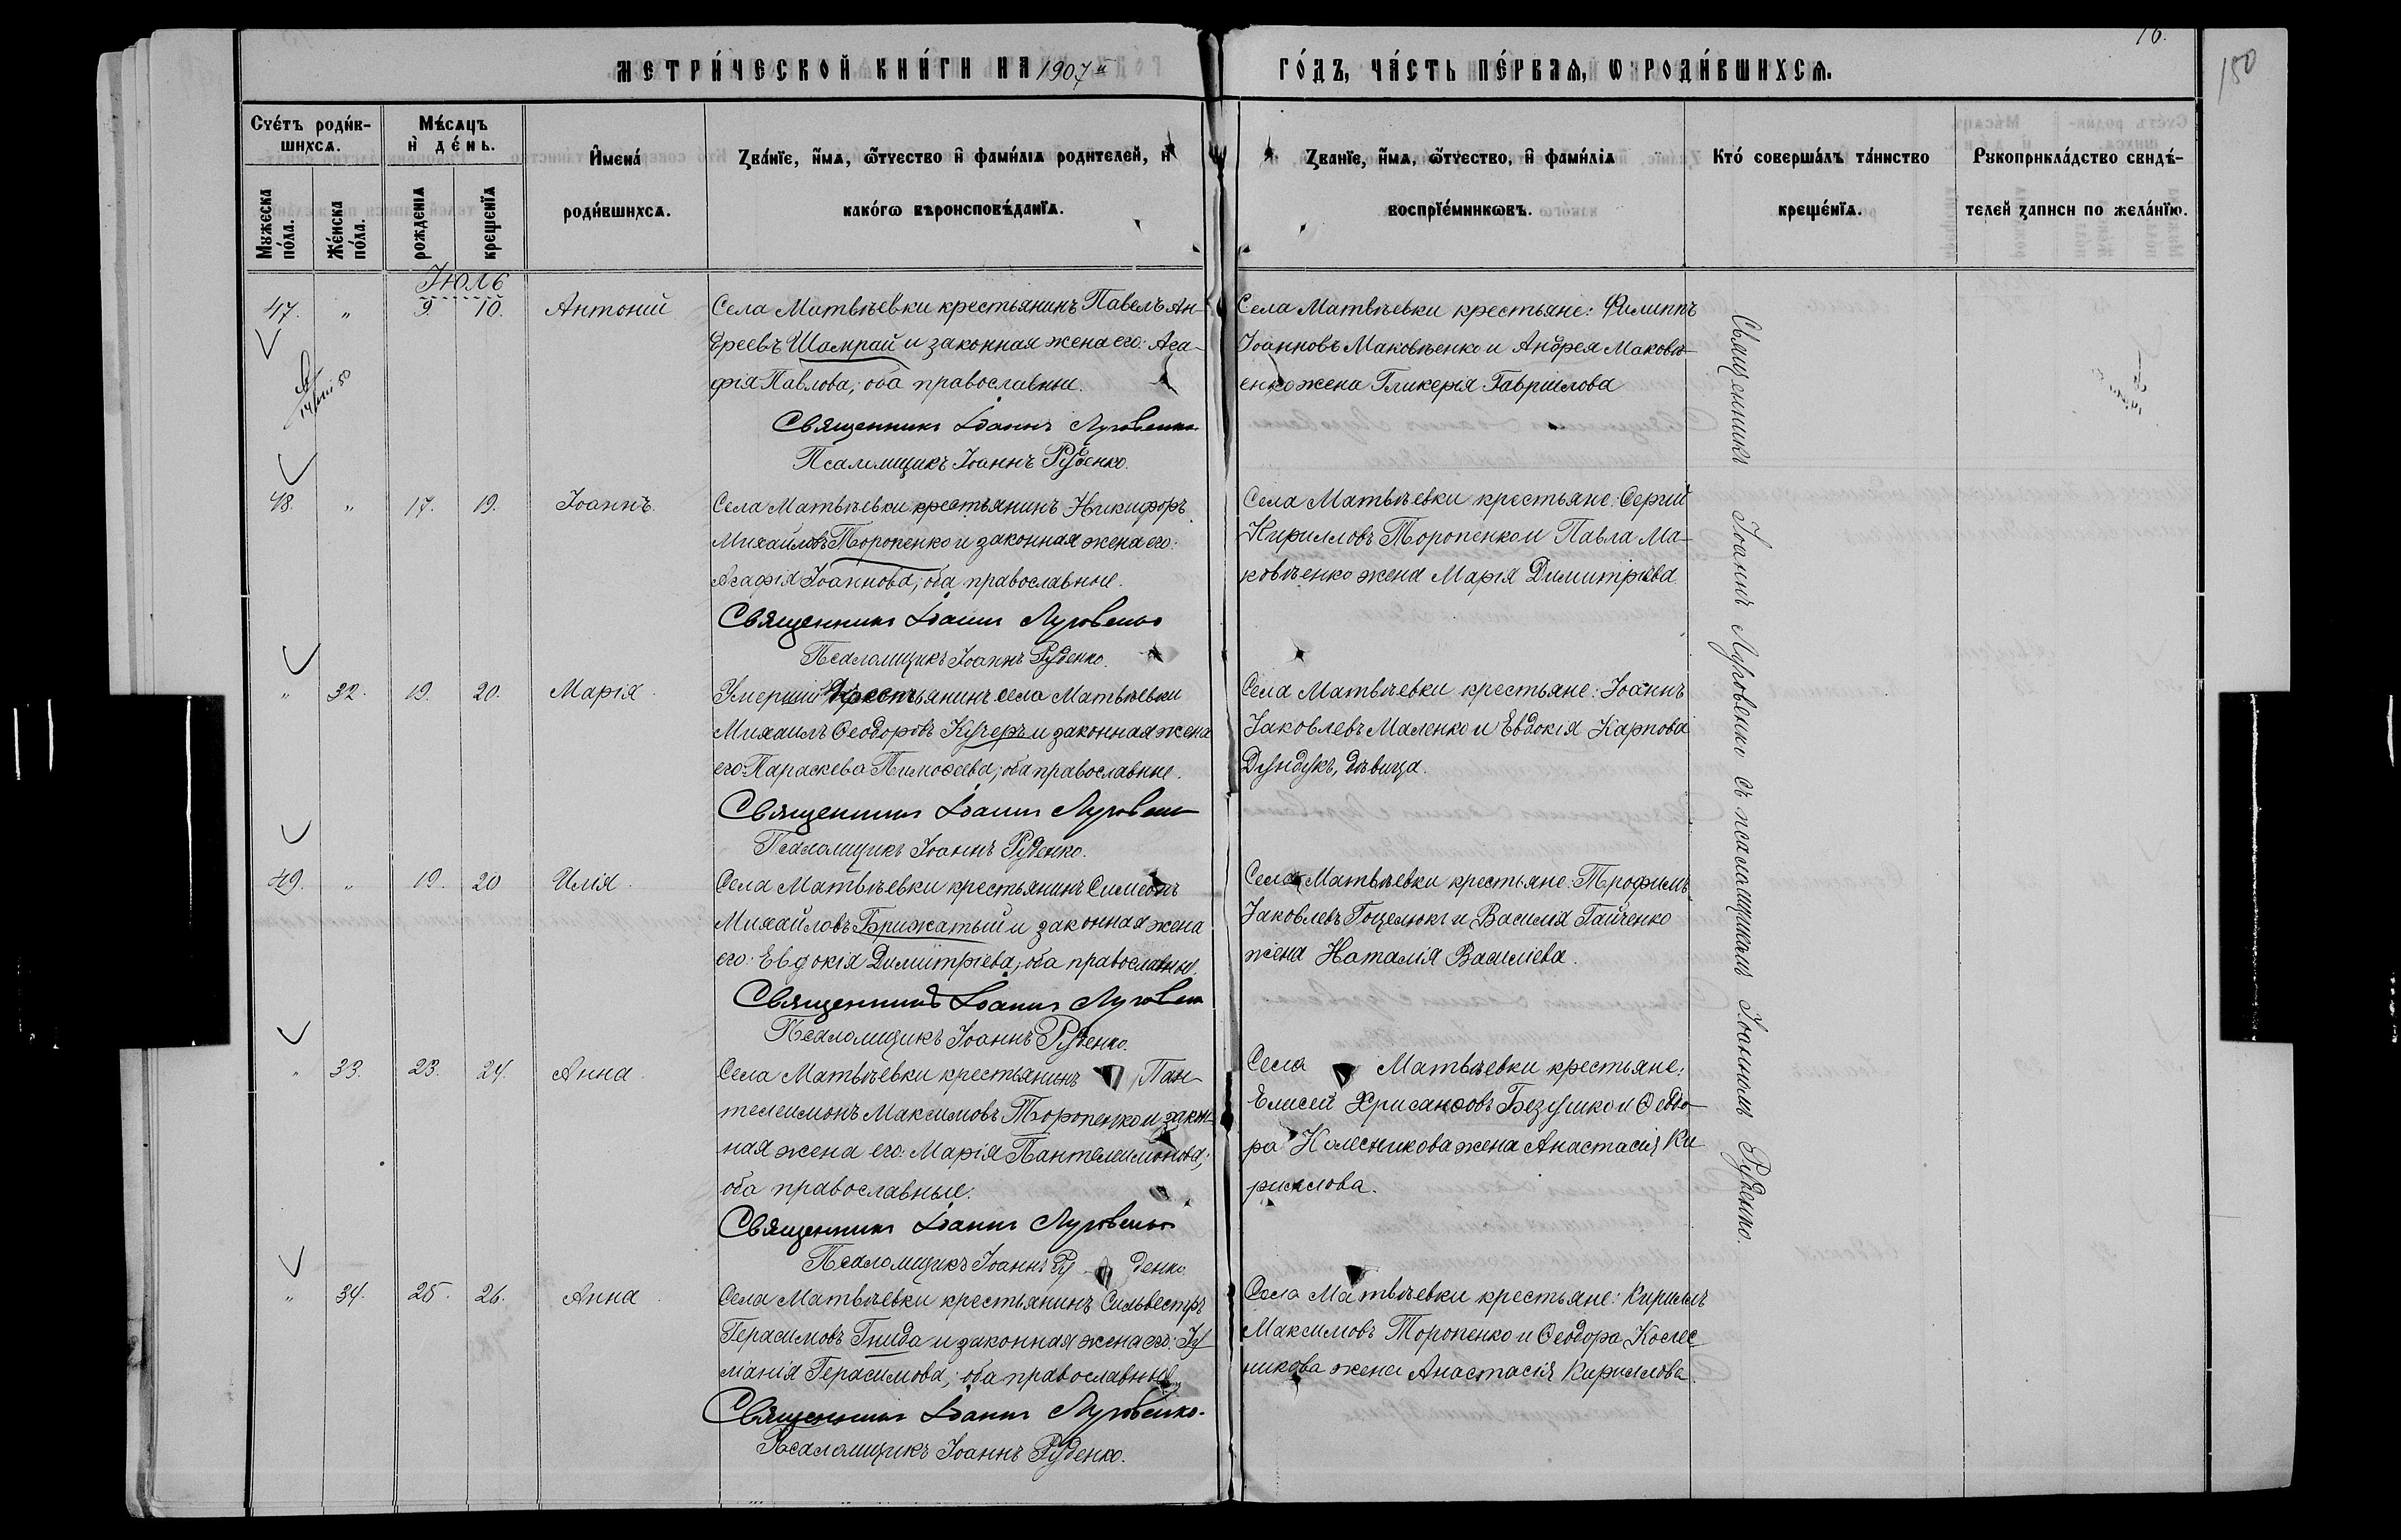 МЕТРИ́ЧЕСКОЙ КНИ́ГИ НА 1907 й
ГО́ДЪ, ЧА́СТЬ ПЕ́РВАѦ, Ѡ РОДИ́ВШИХСѦ.
16.
150
Сче́тъ роди́в-
шихсѧ.
Мужеска по́ла.
Же́нска по́ла.
Мѣ́сѧцъ
и де́нь.
рожденїѧ
крещенїѧ
И҆мена́
роди́вшихсѧ.
Зва́нїе, и҆́мѧ, ѻ҆́тчество и҆ фами́лїѧ родителей, и҆
како́гѡ вѣроисповѣ́данїѧ.
Званїе, и҆́мѧ, ѻ҆́тчество, и҆ фами́лїѧ
воспрїе́мникѡвъ.
Кто́ соверша́лъ та́инство
креще́нїѧ.
Рукоприкла́дство свидѣ́-
телей записи по жела́нїю.
Іюль
47. " 9. 10. Антоній
Села Матвѣевки крестьянинъ Павелъ Ан-
дреевъ Шампрай и законная жена его: Ага-
фія Павлова; оба православные.
Священникъ Іоаннъ Луговенко
Псаломщикъ Іоаннъ Руденко.
Села Матвѣевки крестьяне: Филиппъ
Іоанновъ Маковѣенко и Андрея Маковѣ-
енко жена Гликерія Гавріилова
48. " 17. 19. Іоаннъ.
Села Матвѣевки крестьянинъ Никифоръ
Михаиловъ Торопенко и законная жена его:
Агафія Іоаннова; оба православные.
Священникъ Іоаннъ Луговенко
Псаломщикъ Іоаннъ Руденко.
Села Матвѣевки крестьяне: Сергій
Кирилловъ Торопенко и Павла Ма-
ковѣенко жена Марія Димитріева
" 32. 19. 20. Марія.
Умершій крестьянинъ села Матвѣевки
Михаилъ Ѳеодоровъ Кучеръ и законная жена
его: Параскева Тимоѳеева; оба православные.
Священникъ Іоаннъ Луговенко
Псаломщикъ Іоаннъ Руденко.
Села Матвѣевки крестьяне: Іоаннъ
Іаковлевъ Маленко и Евдокія Карпова
Дундукъ, дѣвица.
49. " 19. 20 Илія.
Села Матвѣевки крестьянинъ Симеонъ
Михайловъ Брижатый и законная жена
его: Евдокія Димитріева; оба православные.
Священникъ Іоаннъ Луговенко
Псаломщикъ Іоаннъ Руденко.
Села Матвѣевки крестьяне: Трофимъ
Іаковлевъ Гоцелюкъ и Василія Гайченко
жена Наталія Василіева.
" 33. 23. 24. Анна.
Села Матвѣевки крестьянинъ Пан-
телеимонъ Максимовъ Торопенко и закон-
ная жена его: Марія Пантелеимонова;
оба православные.
Священникъ Іоаннъ Луговенко
Псаломщикъ Іоаннъ Руденко.
Села Матвѣевки крестьяне:
Елисей Хрисанѳовъ Безушко и Ѳеодо-
ра Колесникова жена Анастасія Ки
риллова.
" 34. 25. 26. Анна.
Села Матвѣевки крестьянинъ Сильвестръ
Герасимовъ Гнида и законная жена его: Іу
ліанія Герасимова; оба православные
Священникъ Іоаннъ Луговенко.
Псаломщикъ Іоаннъ Руденко.
Села Матвѣевки крестьяне: Кириллъ
Максимовъ Торопенко и Ѳеодора Колес
никова жена Анастасія Кириллова.
Священникъ Іоаннъ Луговенко съ псаломщикомъ Іоанномъ Руденко.